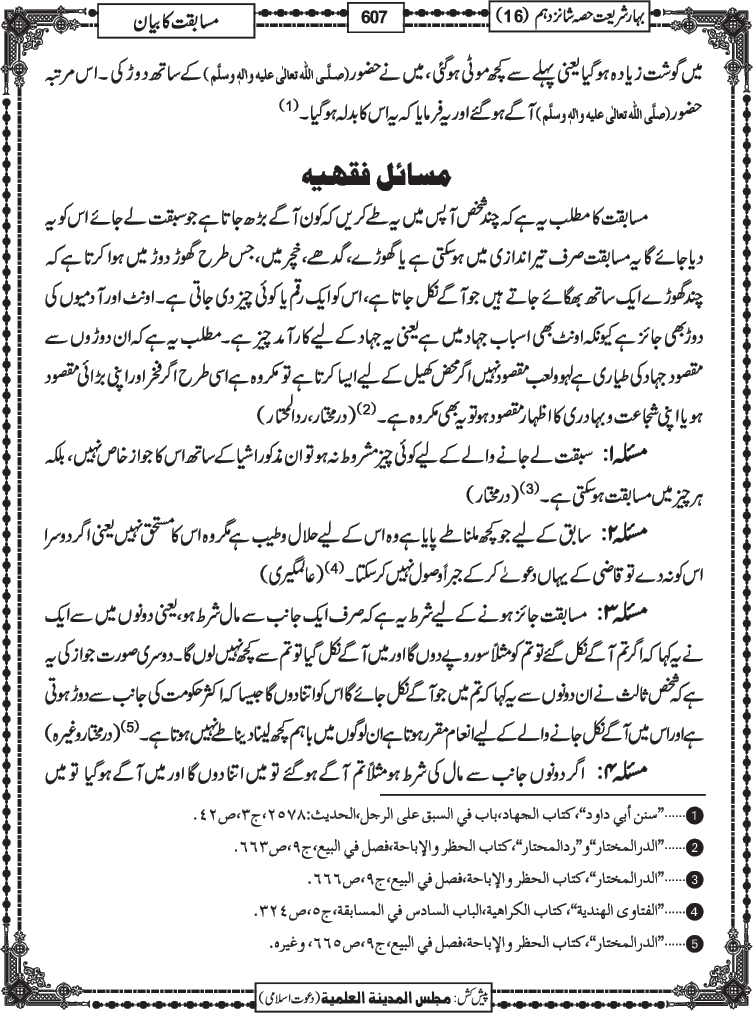 بہار شریعت حصہ شانزدہم (16)
607
مسابقت کا بیان
میں گوشت زیادہ ہوگیا یعنی پہلے سے کچھ موٹی ہوگئی، میں نے حضور (صلَّی اللہ تعالٰی علیہ واٰلہٖ وسلَّم) کے ساتھ دوڑ کی ۔ اس مرتبہ
حضور (صلَّی اللہ تعالٰی علیہ واٰلہٖ وسلَّم) آگے ہوگئے اور یہ فرمایا کہ یہ اس کا بدلہ ہوگیا۔(1)
مسائل فقهیه
مسابقت کا مطلب یہ ہے کہ چند شخص آپس میں یہ طے کریں کہ کون آگے بڑھ جاتا ہے جو سبقت لے جائے اس کو یہ
دیا جائے گا یہ مسابقت صرف تیر اندازی میں ہوسکتی ہے یا گھوڑے، گدھے، خچر میں، جس طرح گھوڑ دوڑ میں ہوا کرتا ہے کہ
چند گھوڑے ایک ساتھ بھگائے جاتے ہیں جو آگے نکل جاتا ہے، اس کو ایک رقم یا کوئی چیز دی جاتی ہے۔ اونٹ اور آدمیوں کی
دوڑ بھی جائز ہے کیونکہ اونٹ بھی اسباب جہاد میں ہے یعنی یہ جہاد کے لیے کار آمد چیز ہے۔ مطلب یہ ہے کہ ان دوڑوں سے
مقصود جہاد کی طیاری ہے لہو ولعب مقصود نہیں اگر محض کھیل کے لیے ایسا کرتا ہے تو مکروہ ہے اسی طرح اگر فخر اور اپنی بڑائی مقصود
ہو یا اپنی شجاعت و بہادری کا اظہار مقصود ہو تو یہ بھی مکروہ ہے۔(2) (درمختار، ردالمحتار)
مسئلہ ۱: سبقت لے جانے والے کے لیے کوئی چیز مشروط نہ ہو تو ان مذکور اشیا کے ساتھ اس کا جواز خاص نہیں، بلکہ
ہر چیز میں مسابقت ہوسکتی ہے۔(3) (درمختار)
مسئلہ ۲: سابق کے لیے جو کچھ ملنا طے پایا ہے وہ اس کے لیے حلال وطیب ہے مگر وہ اس کا مستحق نہیں یعنی اگر دوسرا
اس کو نہ دے تو قاضی کے یہاں دعویٰ کرکے جبراً وصول نہیں کرسکتا۔(4) (عالمگیری)
مسئلہ ۳: مسابقت جائز ہونے کے لیے شرط یہ ہے کہ صرف ایک جانب سے مال شرط ہو، یعنی دونوں میں سے ایک
نے یہ کہا کہ اگر تم آگے نکل گئے تو تم کو مثلاً سو روپے دوں گا اور میں آگے نکل گیا تو تم سے کچھ نہیں لوں گا۔ دوسری صورت جواز کی یہ
ہے کہ شخص ثالث نے ان دونوں سے یہ کہا کہ تم میں جو آگے نکل جائے گا اس کو اتنا دوں گا جیسا کہ اکثر حکومت کی جانب سے دوڑ ہوتی
ہے اور اس میں آگے نکل جانے والے کے لیے انعام مقرر ہوتا ہے ان لوگوں میں باہم کچھ لینا دینا طے نہیں ہوتا ہے۔(5) (درمختار وغیرہ)
مسئلہ ۴: اگر دونوں جانب سے مال کی شرط ہو مثلاً تم آگے ہوگئے تو میں اتنا دوں گا اور میں آگے ہوگیا تو میں
1 ......"سنن أبي داود"، كتاب الجهاد، باب في السبق على الرجل، الحديث: ۲۵۷۸، ج۳، ص۴۲.
2 ......"الدرالمختار" و"ردالمحتار"، كتاب الحظر والإباحة، فصل في البيع، ج۹، ص۶۶۳.
3 ......"الدرالمختار"، كتاب الحظر والإباحة، فصل في البيع، ج۹، ص۶۶۶.
4 ......"الفتاوى الهندية"، كتاب الكراهية، الباب السادس في المسابقة، ج۵، ص۳۲۴.
5 ......"الدرالمختار"، كتاب الحظر والإباحة، فصل في البيع، ج۹، ص۶۶۵، وغيره.
پیش کش: مجلس المدینة العلمیة (دعوت اسلامی)